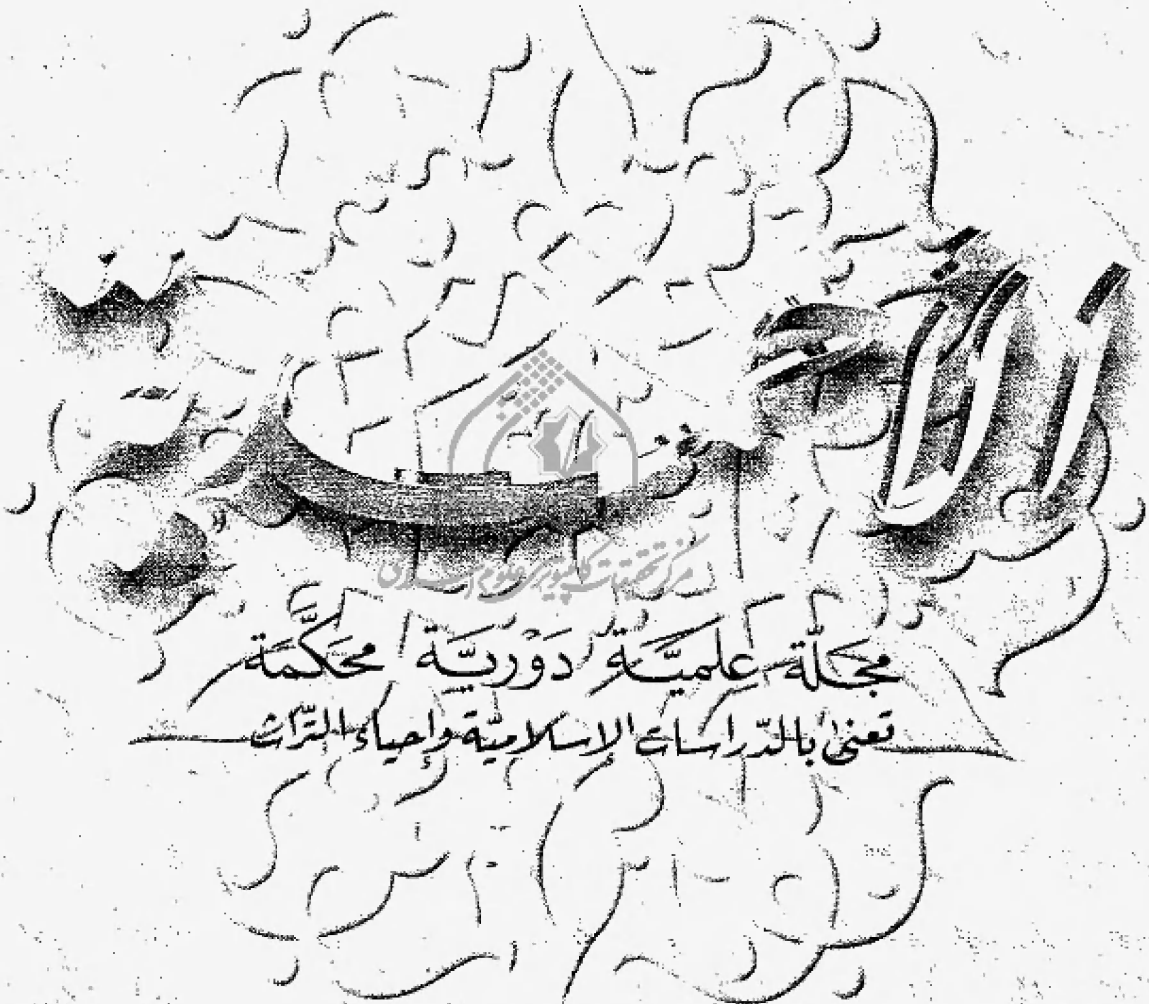 مركز تحقيقات كامپيوترى علوم اسلامى
مجَلّة عِلميَّة دَوْريَّة محكَّمَة
تعنىٰ بالدّراسات الإسلاميّة وإحياء التّراث